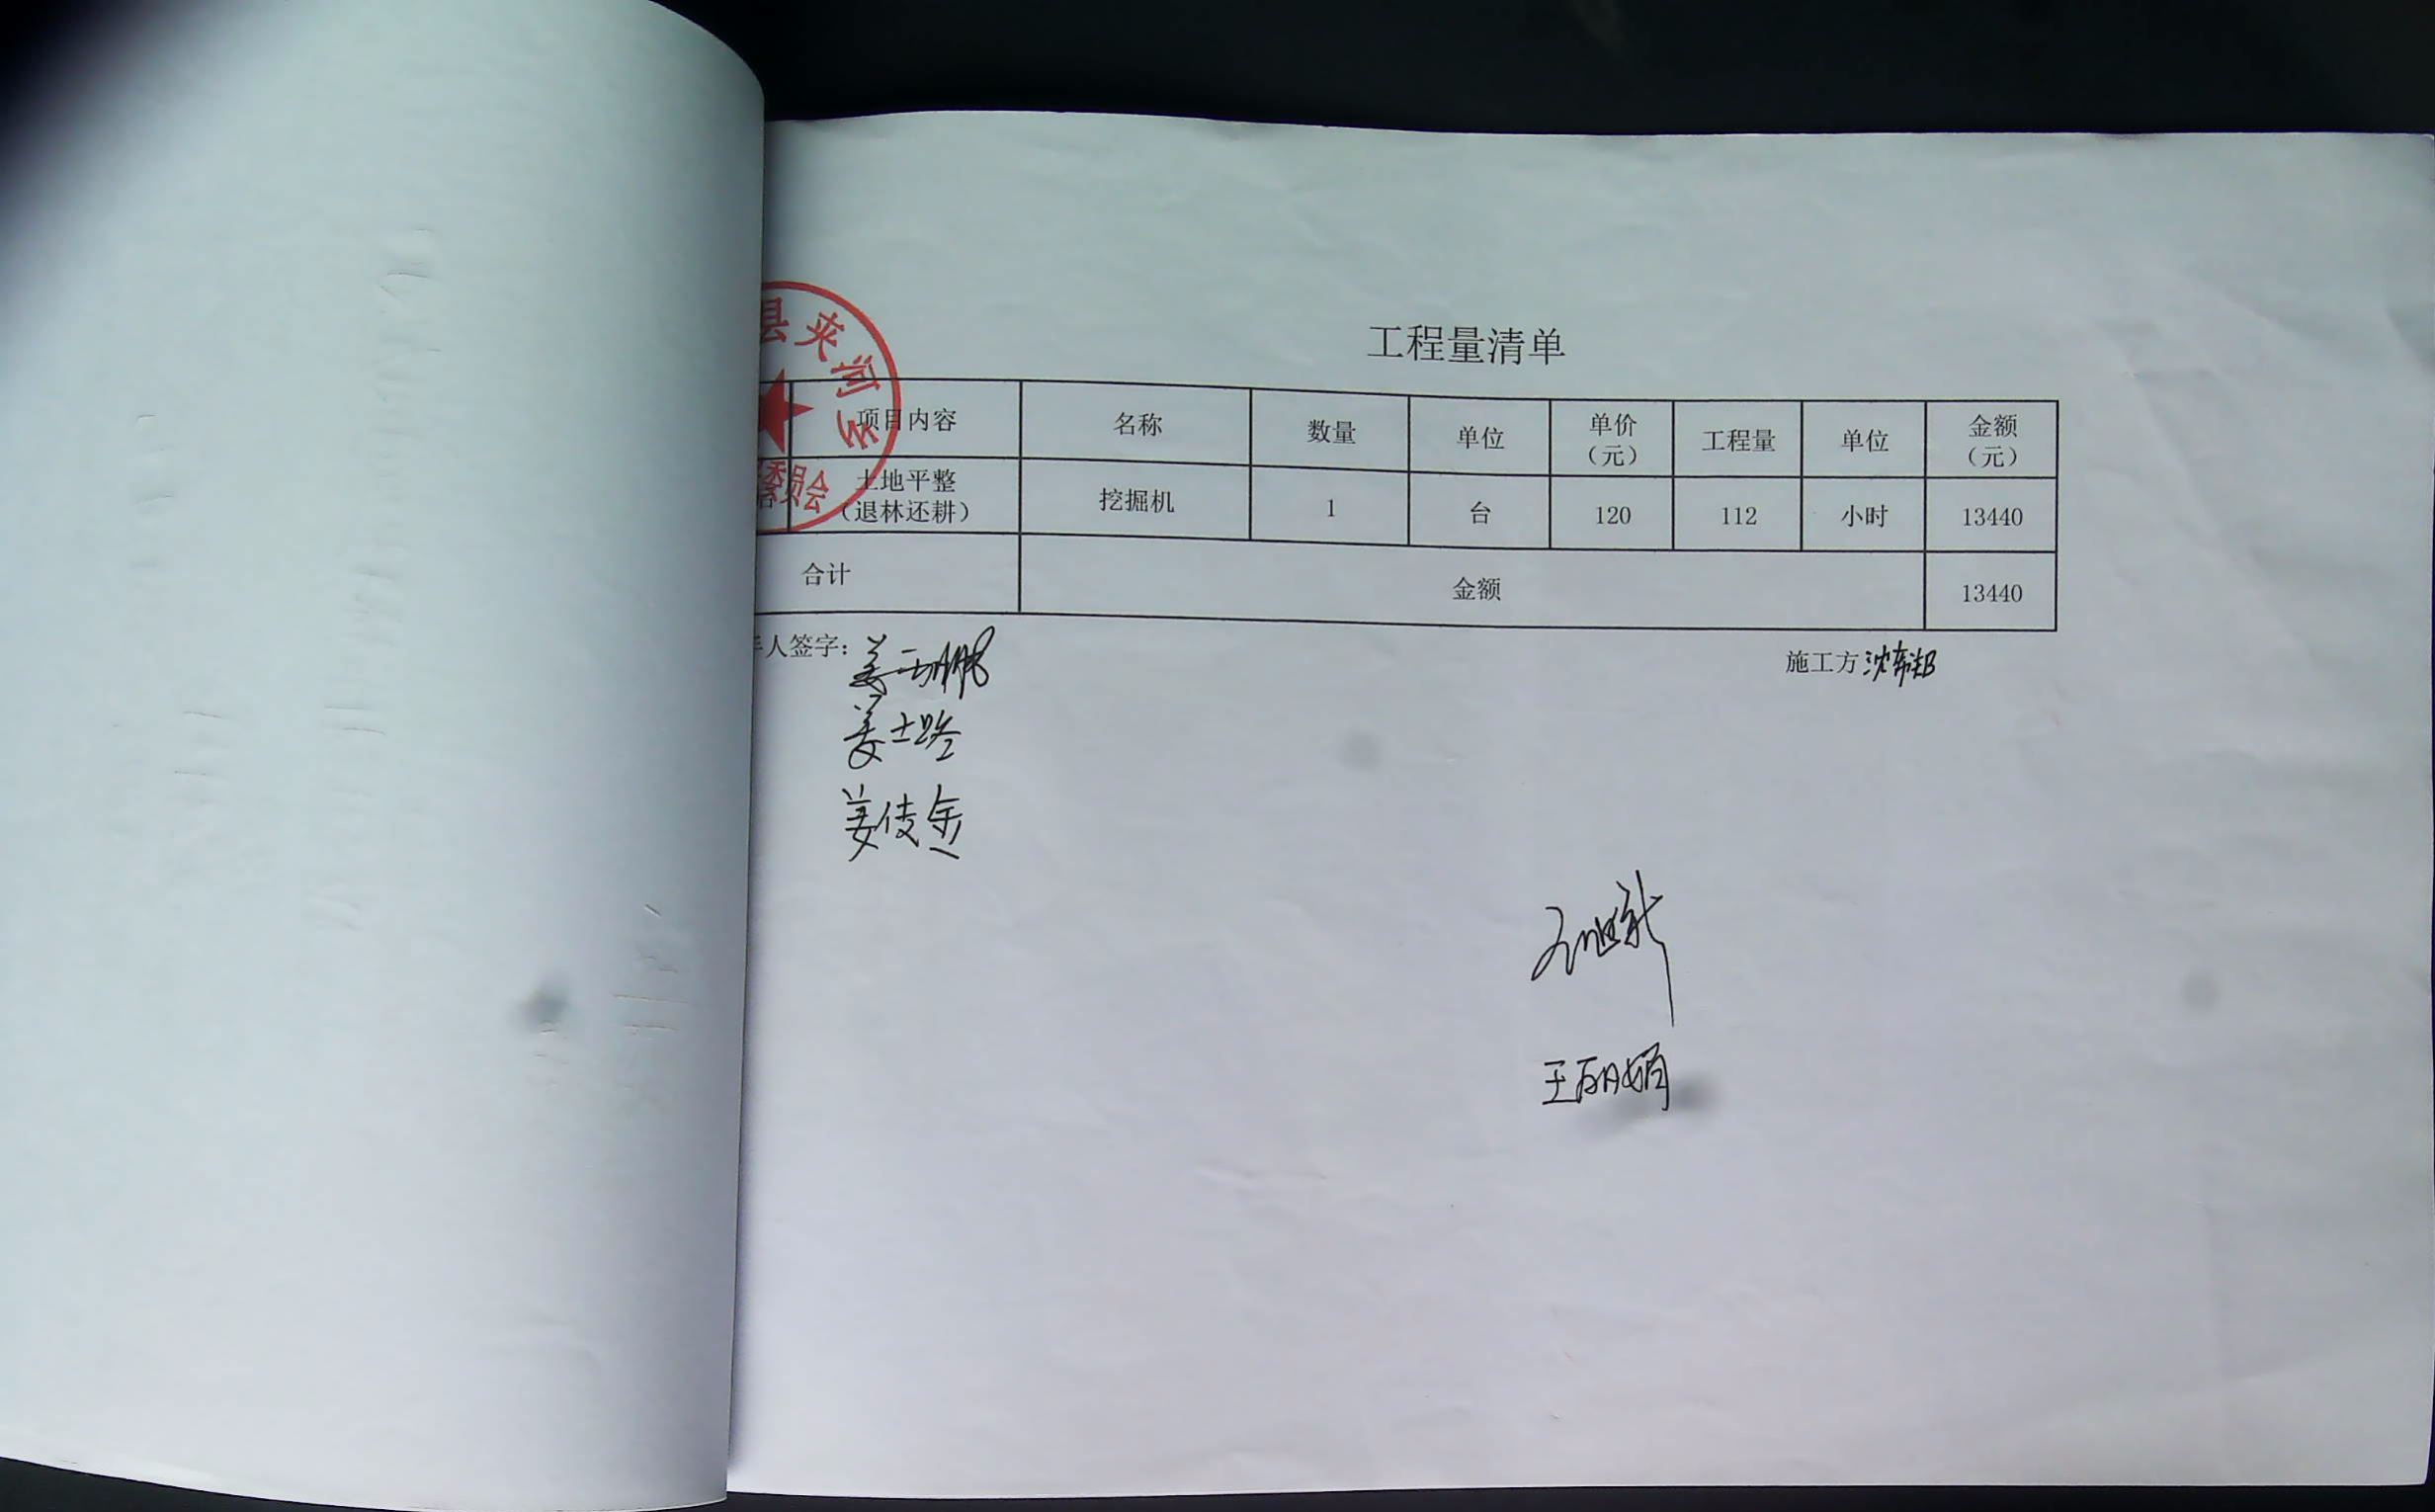 工程量清单
县夹河
委员会
项目内容 名称 数量 单位 单价（元） 工程量 单位 金额（元）
土地平整（退林还耕） 挖掘机 1 台 120 112 小时 13440
合计 金额 13440
人签字： 施工方
姜士路
王丽娟